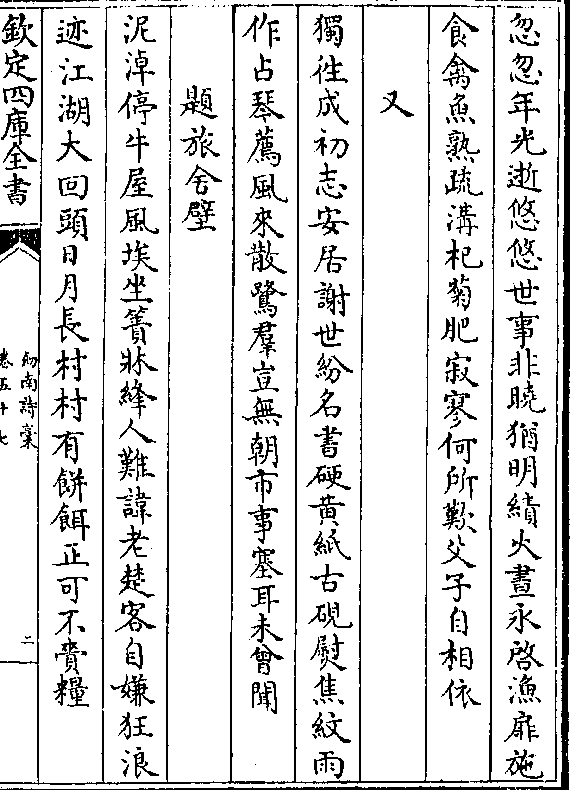 忽忽年光逝悠悠世事非曉猶明績火晝永啓漁扉施
食禽魚熟疏溝杞菊肥寂寥何所歎父子自相依
又
獨往成初志安居謝世紛名書硬黄紙古硯熨焦紋雨
作占琴薦風來散鷺羣豈無朝市事塞耳未曾聞
題旅舍壁
泥淖停牛屋風埃坐簀牀絳人難諱老楚客自嫌狂浪
迹江湖大回頭日月長村村有餅餌正可不賫糧
欽定四庫全書
劒南詩稾
卷五十七
二